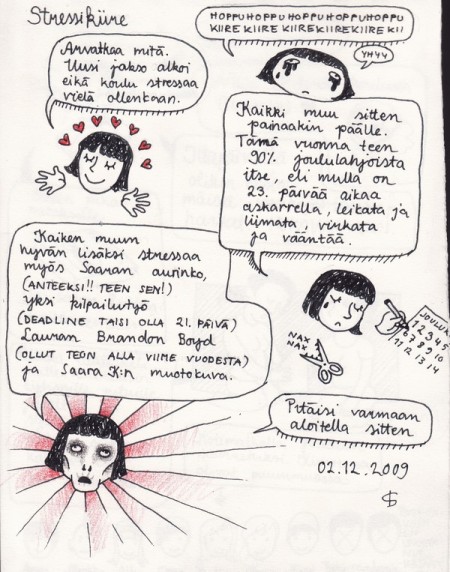 Stressikiire
Arvatkaa mitä.
Uusi jakso alkoi
eikä koulu stressaa
vielä ollenkaan.
HOPPUHOPPUHOPPUHOPPUHOPPU
KIIREKIIREKIIREKIIREKIIREKII
YHYY
Kaikki muu sitten
painaakin päälle.
Tämä vuonna teen
90% joululahjoista
itse, eli mulla on
23. päivää aikaa
askarrella, leikata ja
liimata, virkata
ja vääntää.
Kaiken muun
hyvän lisäksi stressaa
myös Saaran aurinko,
(ANTEEKSI!! TEEN SEN!)
yksi kilpailutyö
(DEADLINE TAISI OLLA 21. PÄIVÄ)
Lauran Brandon Boyd
(OLLUT TEON ALLA VIIME VUODESTA)
ja Saara K:n muotokuva.
NAX
NAX
JOULUKU
1 2 3 4 5
6 7 8 9 10
11 12 13 14
Pitäisi varmaan
aloitella sitten
02.12.2009